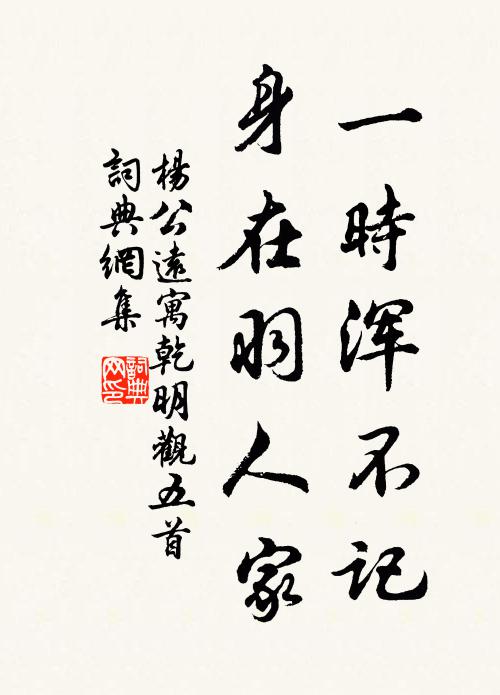 一時浑不記
身在羽人家
楊公遠寓乾明觀五首
詞典網集
詞典網印